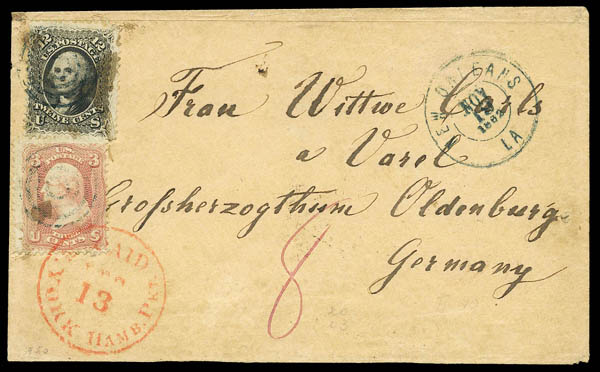 12 U.S. POSTAGE 12
TWELVE CENTS
U S
NEW ORLEANS
NOV
1862
LA
Frau Wittwe Carls
a Varel
Grossherzogthum Oldenburg
Germany
U.S. POSTAGE 3
U CENTS S
PAID
13
YORK HAMB. PKT.
8